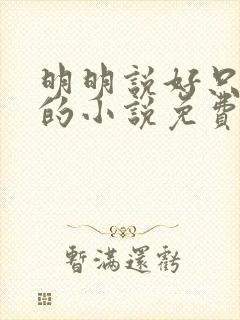 明明說好只
的小說免費
暫滿還虧